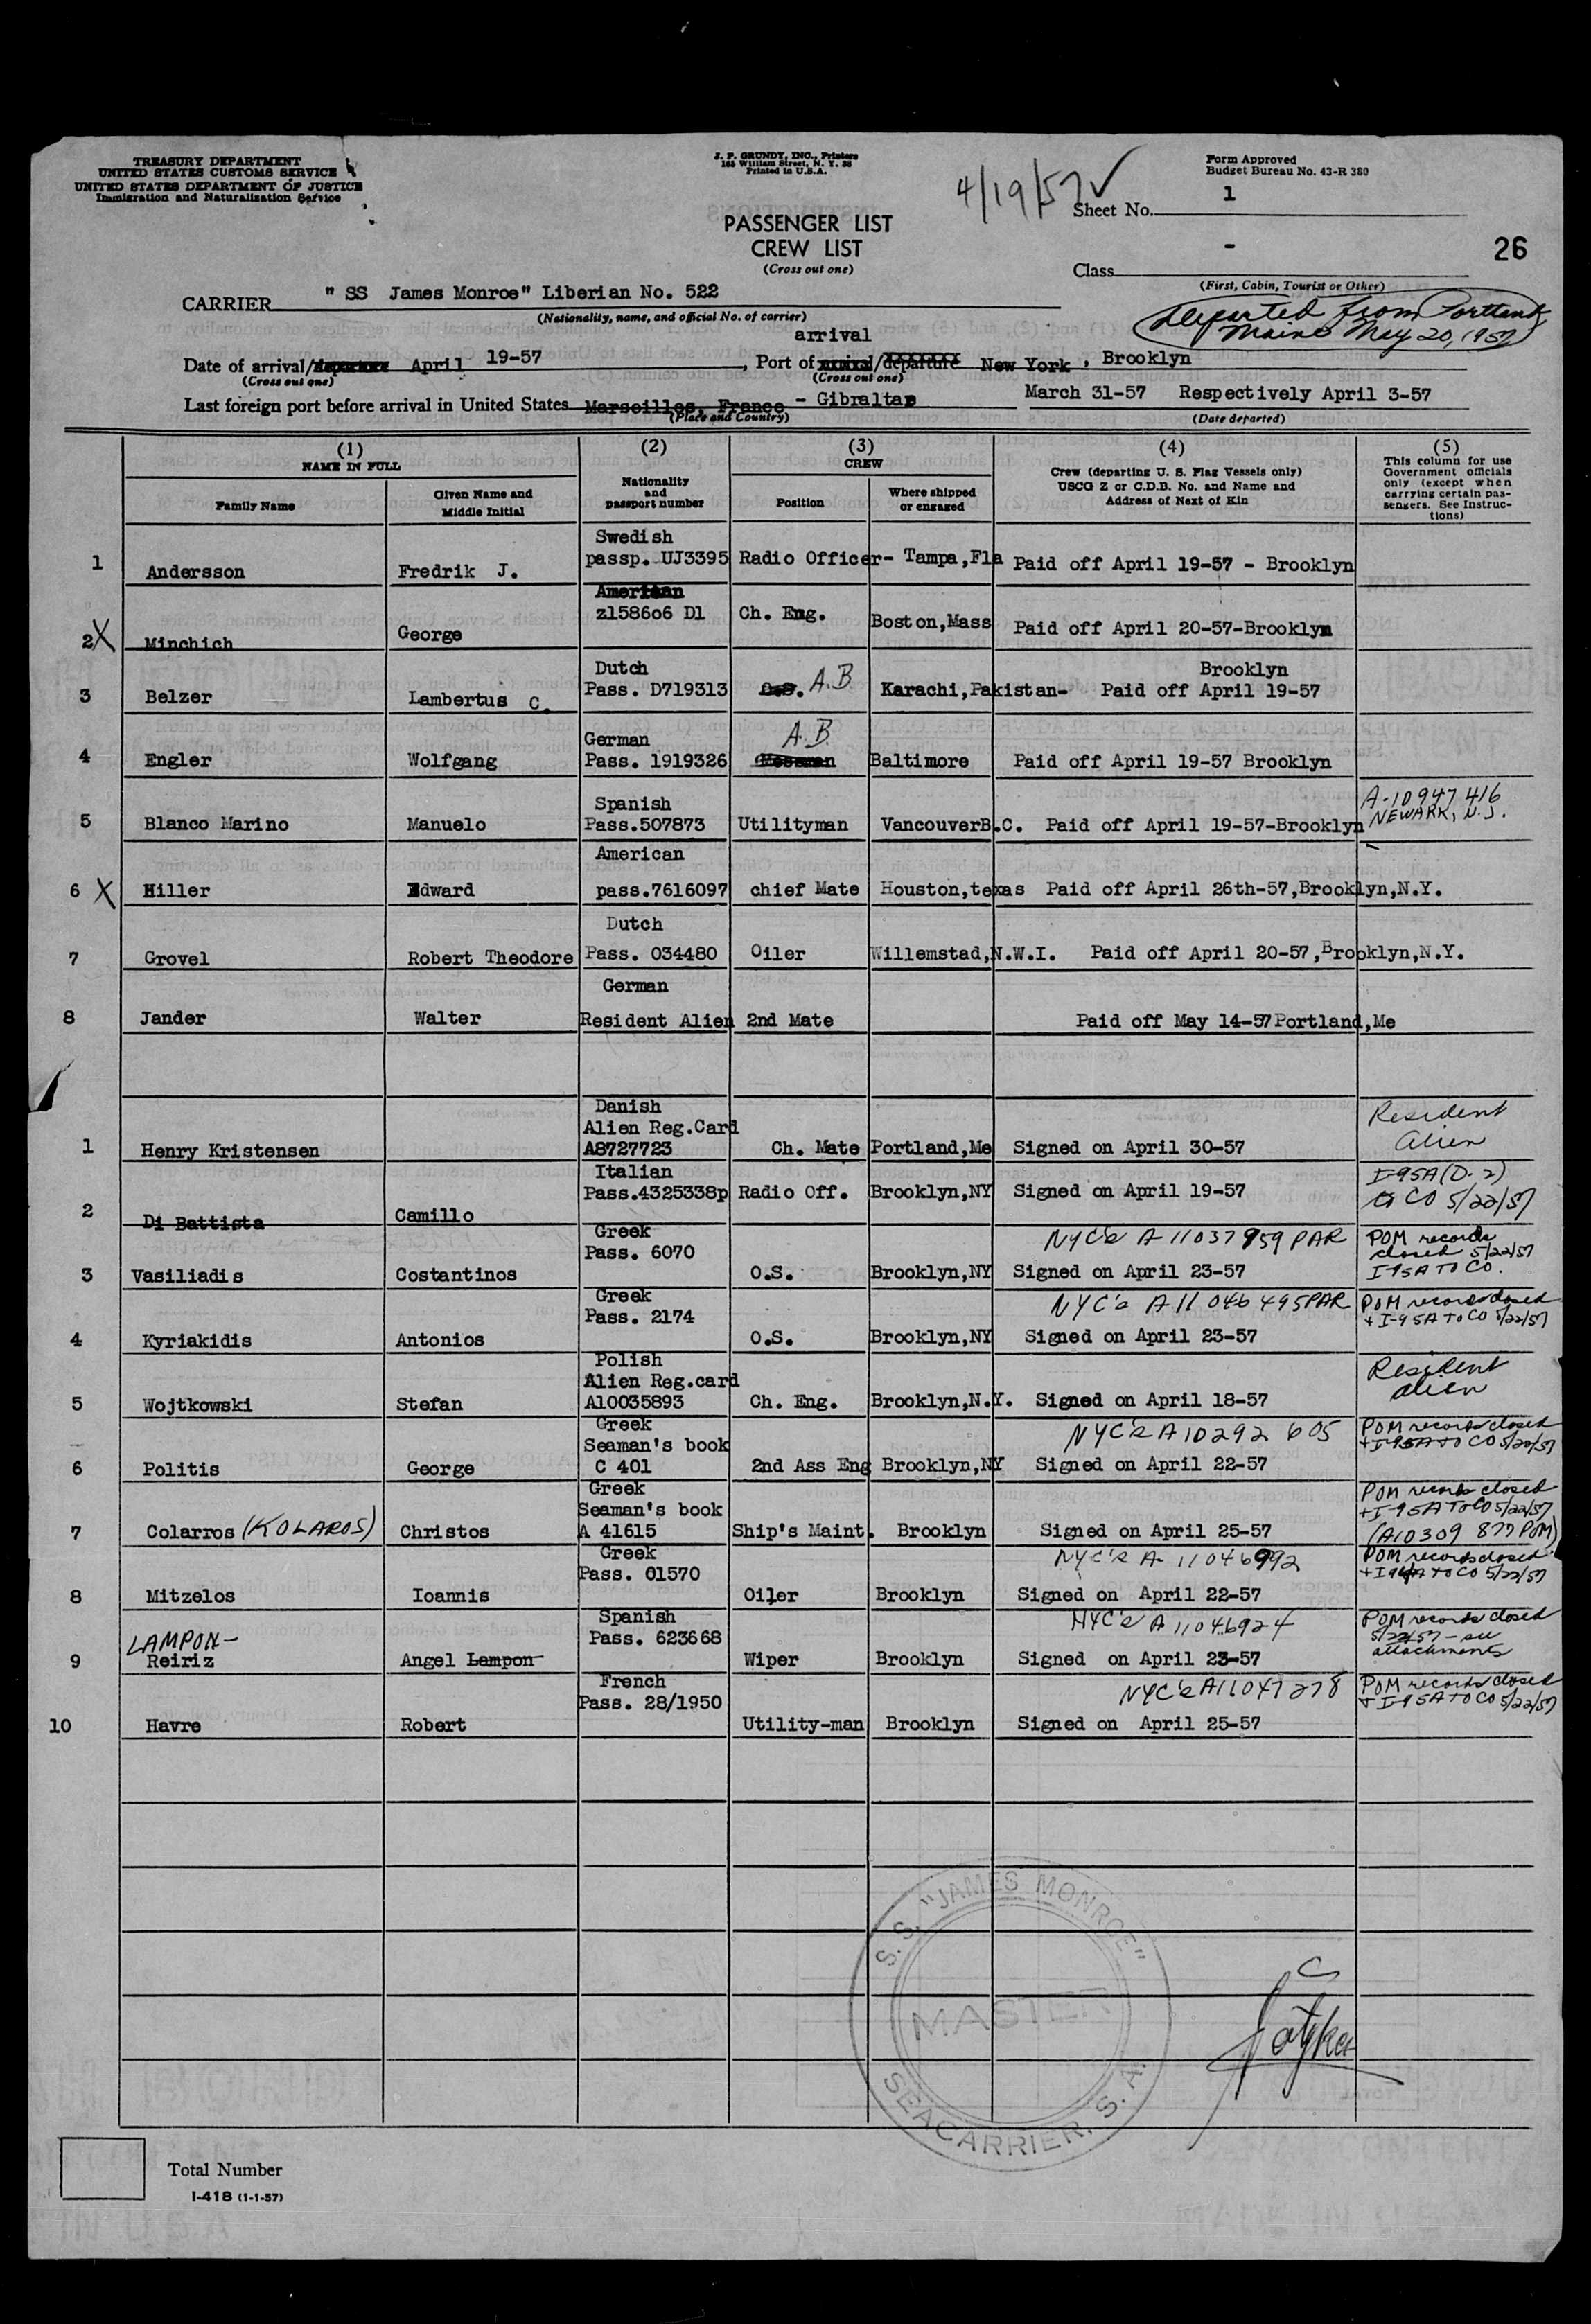 TREASURY DEPARTMENT
UNITED STATES CUSTOMS SERVICE
UNITED STATES DEPARTMENT OF JUSTICE
Immigration and Naturalization Service
J. P. GRUNDY, INC., Printers
William Street, N. Y. 38
Printed in U.S.A.
4/19/57 ✓
Form Approved
Budget Bureau No. 43-R 380
Sheet No. 1
PASSENGER LIST
CREW LIST
(Cross out one)
Class -
(First, Cabin, Tourist or Other)
26
CARRIER " SS James Monroe" Liberian No. 522
(Nationality, name, and official No. of carrier)
Departed from Portland
Maine May 20, 1957
arrival
Date of arrival/ April 19-57, Port of arrival/departure New York, Brooklyn
(Cross out one) (Cross out one)
Last foreign port before arrival in United States Marseilles, France - Gibraltar March 31-57 Respectively April 3-57
(Place and Country) (Date departed)
(1) NAME IN FULL
Family Name
Given Name and Middle Initial
(2) Nationality and passport number
(3) CREW
Position
Where shipped or engaged
(4) Crew (departing U. S. Flag Vessels only) USCG Z or C.D.B. No. and Name and Address of Next of Kin
(5) This column for use Government officials only (except when carrying certain passengers. See Instructions)
1 Andersson Fredrik J. Swedish passp. UJ3395 Radio Officer- Tampa,Fla Paid off April 19-57 - Brooklyn
2 X Minchich George American z158606 D1 Ch. Eng. Boston,Mass Paid off April 20-57-Brooklyn
3 Belzer Lambertus C. Dutch Pass. D719313 O.S. A.B Karachi,Pakistan- Paid off April 19-57 Brooklyn
4 Engler Wolfgang German Pass. 1919326 Messman A.B. Baltimore Paid off April 19-57 Brooklyn
5 Blanco Marino Manuelo Spanish Pass.507873 Utilityman VancouverB.C. Paid off April 19-57-Brooklyn A-10947416 NEWARK, N.J.
6 X Hiller Edward American pass.7616097 chief Mate Houston,texas Paid off April 26th-57,Brooklyn,N.Y.
7 Grovel Robert Theodore Dutch Pass. 034480 Oiler Willemstad,N.W.I. Paid off April 20-57,Brooklyn,N.Y.
8 Jander Walter German Resident Alien 2nd Mate Paid off May 14-57 Portland,Me
1 Henry Kristensen Danish Alien Reg.Card A8727723 Ch. Mate Portland,Me Signed on April 30-57 Resident alien
2 Di Battista Camillo Italian Pass.4325338p Radio Off. Brooklyn,NY Signed on April 19-57 I-95A(D-2) CO 5/22/57
3 Vasiliadis Costantinos Greek Pass. 6070 O.S. Brooklyn,NY NYC'R A 11037959 PAR Signed on April 23-57 POM records closed 5/22/57 I-95A TO CO.
4 Kyriakidis Antonios Greek Pass. 2174 O.S. Brooklyn,NY NYC'R A 11 046 495PAR Signed on April 23-57 POM records closed + I-95A TO CO 5/22/57
5 Wojtkowski Stefan Polish Alien Reg.card A10035893 Ch. Eng. Brooklyn,N.Y. Signed on April 18-57 Resident alien
6 Politis George Greek Seaman's book C 401 2nd Ass Eng Brooklyn,NY NYC'R A10292 605 Signed on April 22-57 POM records closed + I-95A TO CO 5/22/57
7 Colarros (KOLAROS) Christos Greek Seaman's book A 41615 Ship's Maint. Brooklyn Signed on April 25-57 POM records closed + I-95A TO CO 5/22/57 (A10309 877 POM)
8 Mitzelos Ioannis Greek Pass. 01570 Oiler Brooklyn NYC'R A- 11046992 Signed on April 22-57 POM records closed + I-95A TO CO 5/22/57
9 LAMPON- Reiriz Angel Lampon Spanish Pass. 623668 Wiper Brooklyn NYC'R A 11046924 Signed on April 23-57 POM records closed 5/22/57 - see attachments
10 Havre Robert French Pass. 28/1950 Utility-man Brooklyn NYC'R A11047278 Signed on April 25-57 POM records closed + I-95A TO CO 5/22/57
S.S. "JAMES MONROE"
MASTER
SEACARRIER, S.A.
Total Number
I-418 (1-1-57)